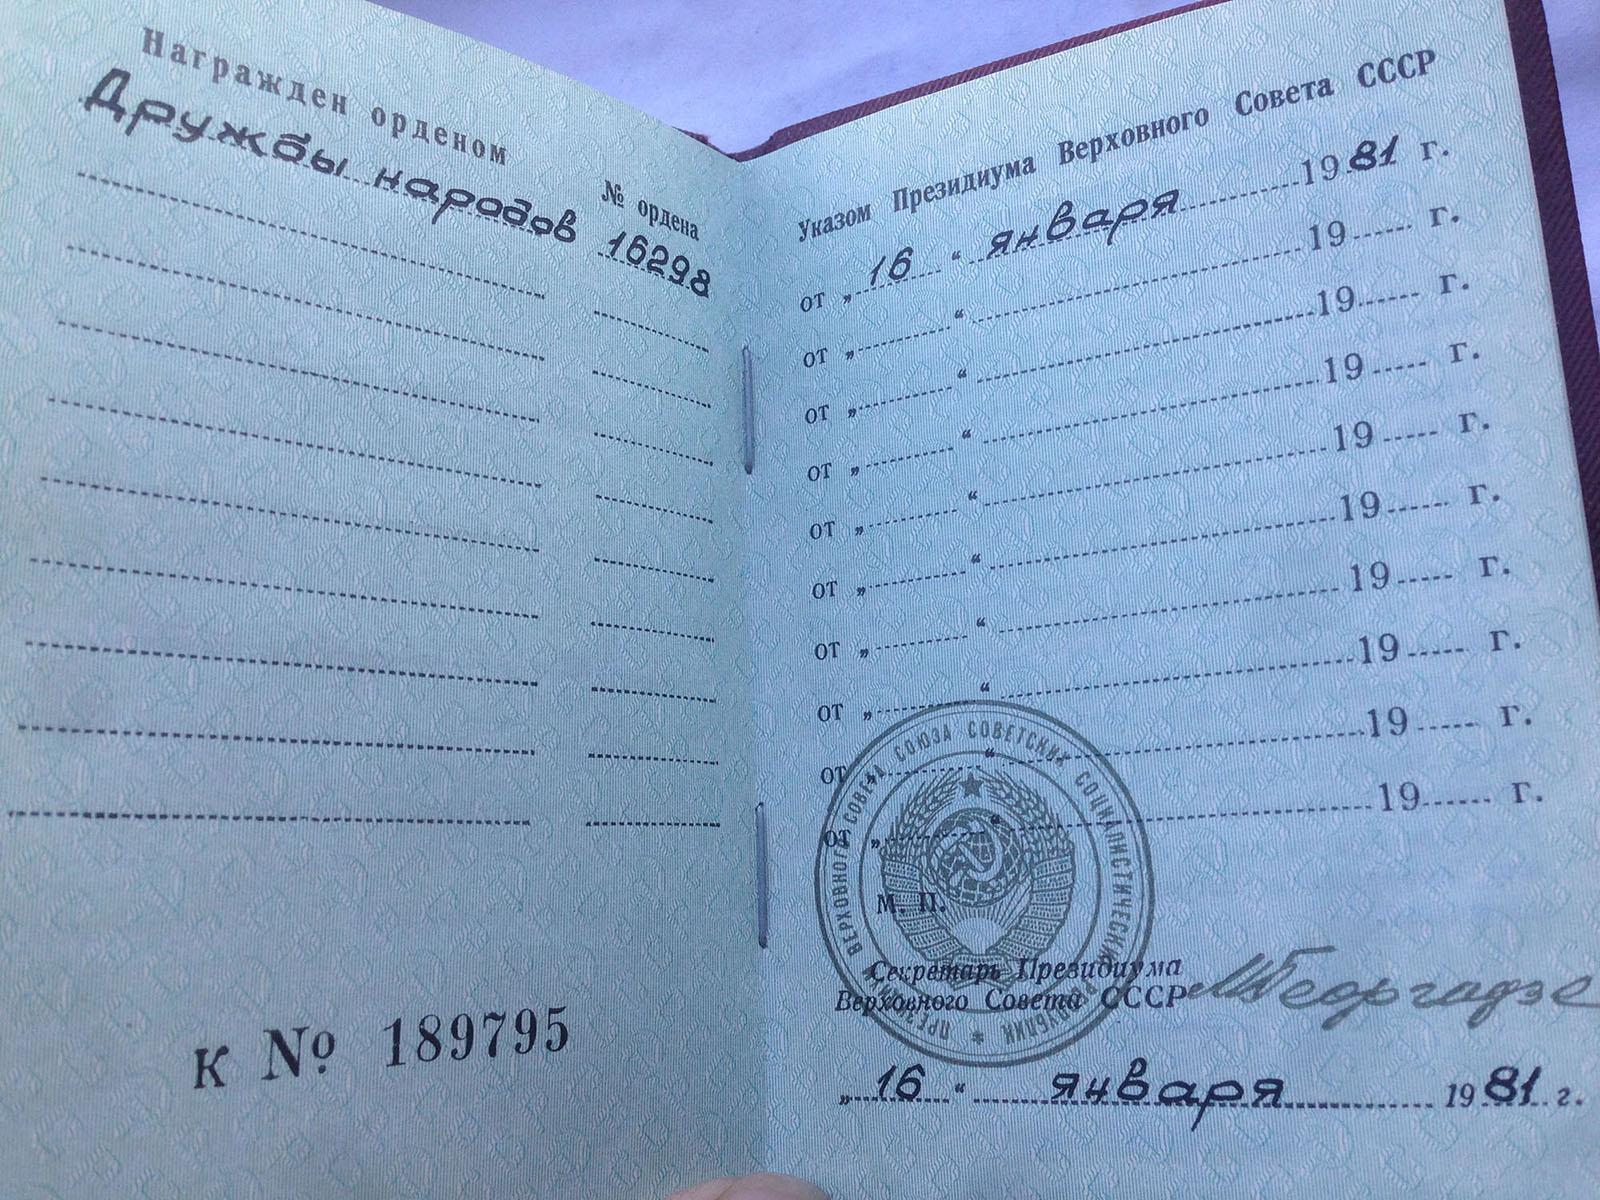 Награжден орденом
№ ордена
Дружбы народов 16298
К № 189795
Указом Президиума Верховного Совета СССР
от „ 16 “ января 1981 г.
от „ “ 19 г.
от „ “ 19 г.
от „ “ 19 г.
от „ “ 19 г.
от „ “ 19 г.
от „ “ 19 г.
от „ “ 19 г.
от „ “ 19 г.
от „ “ 19 г.
ПРЕЗИДИУМ ВЕРХОВНОГО СОВЕТА СОЮЗА СОВЕТСКИХ СОЦИАЛИСТИЧЕСКИХ РЕСПУБЛИК *
М. П.
Секретарь Президиума
Верховного Совета СССР МГеоргадзе
„ 16 “ января 1981 г.